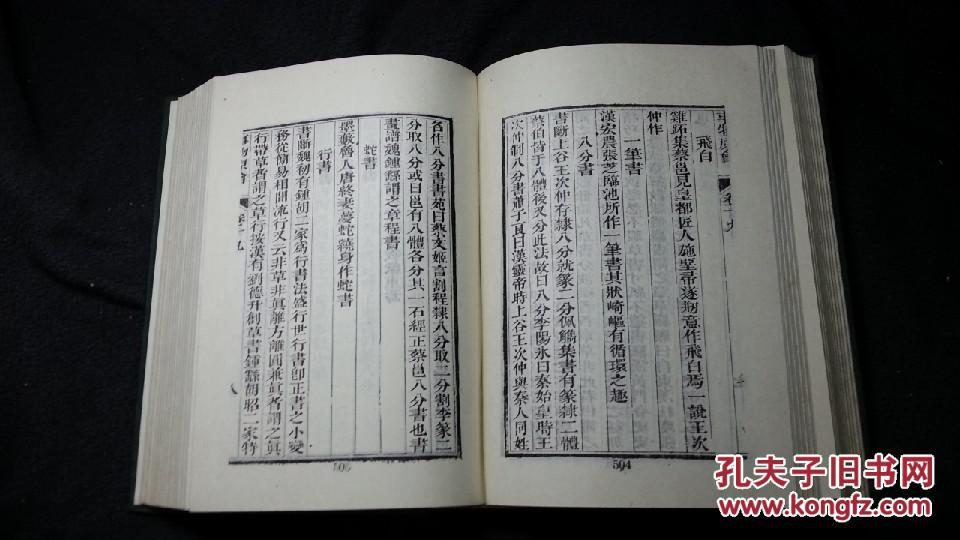 飛白
雞跖集蔡邕見皇都匠人施堊帚遂刱意作飛白焉一說王次
仲作
一筆書
漢宏農張芝臨池所作一筆書其狀崎嶇有循環之趣
八分書
書斷上谷王次仲存隸八分就篆二分佩觿集書有篆隸二體
蔡伯喈于八體後又分此法故曰八分李陽冰曰秦始皇時王
次仲制八分書蕭子良曰漢靈帝時上谷王次仲與蔡人同姓
504
名作八分書書苑曰蔡文姬言割程隸八分取二分割李篆二
分取八分或曰邕有八體各分其一石經正蔡邕八分書也書
畫譜魏鍾繇謂之章程書
蛇書
墨藪魯人唐終妻蔓蛇繞身作蛇書
行書
書斷魏初有鍾胡二家為行書法盛行世行書即正書之小變
務從簡易相間流行又云非草非眞離方離圓兼眞者謂之眞
行帶草者謂之草行按漢有劉德升創草書鍾繇胡昭二家特
卷十九
505
孔夫子旧书网
www.kongfz.com